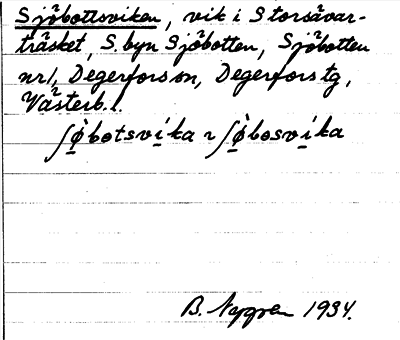 Sjöbottsviken, vik i Storsävar-
träsket, S. byn Sjöbotten, Sjöbotten
nr 1, Degerfors sn, Degerfors tg,
Västerb. l.
ʃø̀botsvika ~ ʃø̀bosvika
B. Nygren 1934.